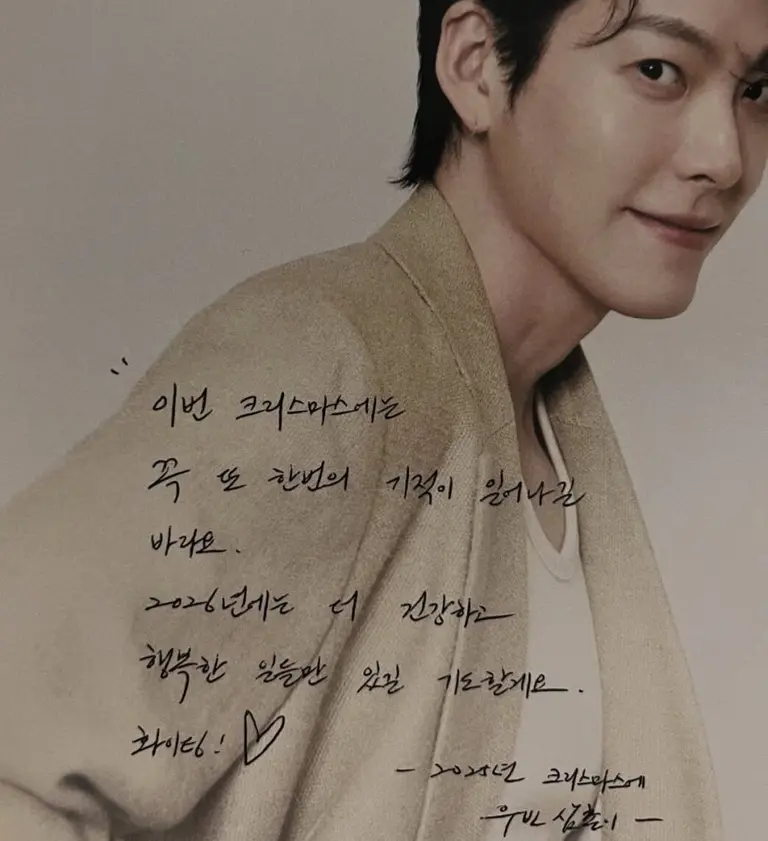 " 이번 크리스마스에는
꼭 또 한번의 기적이 일어나길
바라요.
2026년에는 더 건강하고
행복한 일들만 있길 기도할게요.
화이팅! ♡
- 2025년 크리스마스에
우빈 삼촌이 -